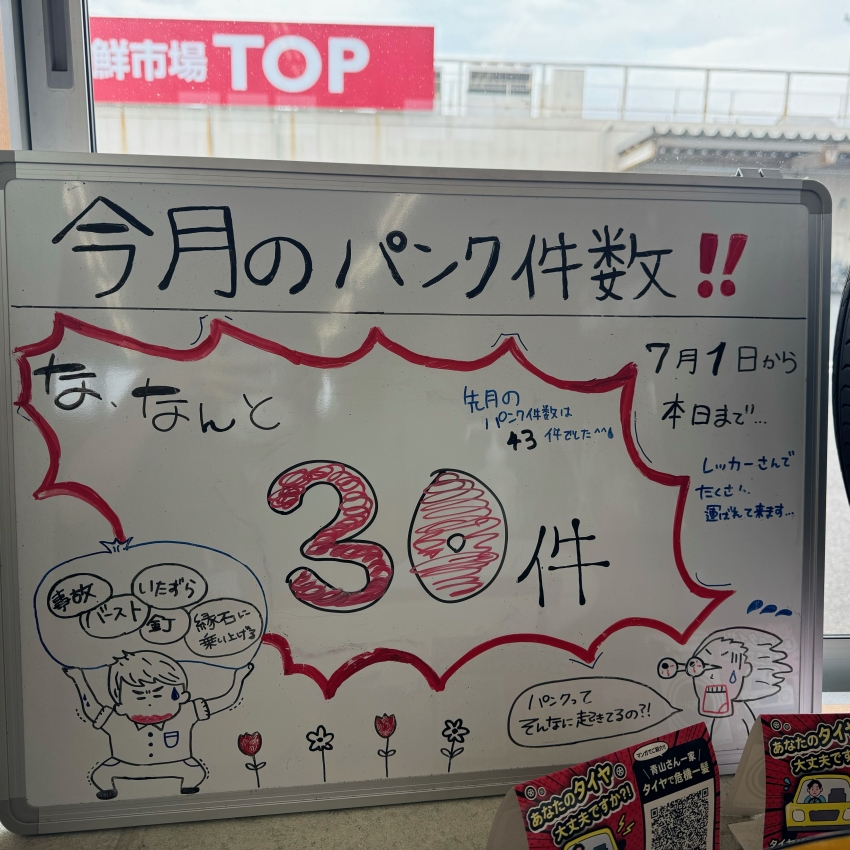 鮮市場 TOP
今月のパンク件数!!
な、なんと
先月の
パンク件数は
43 件でした^^
30件
7月1日から
本日まで…
レッカーさんで
たくさん
運ばれて来ます…
事故
いたずら
バースト
釘
縁石に
乗り上げる
パンクって
そんなに起きてるの?!
あなたのタイヤ
大丈夫ですか?!
マンガでご紹介!!
青山さん一家
タイヤで危機一髪
あなたのタイ
大丈夫です